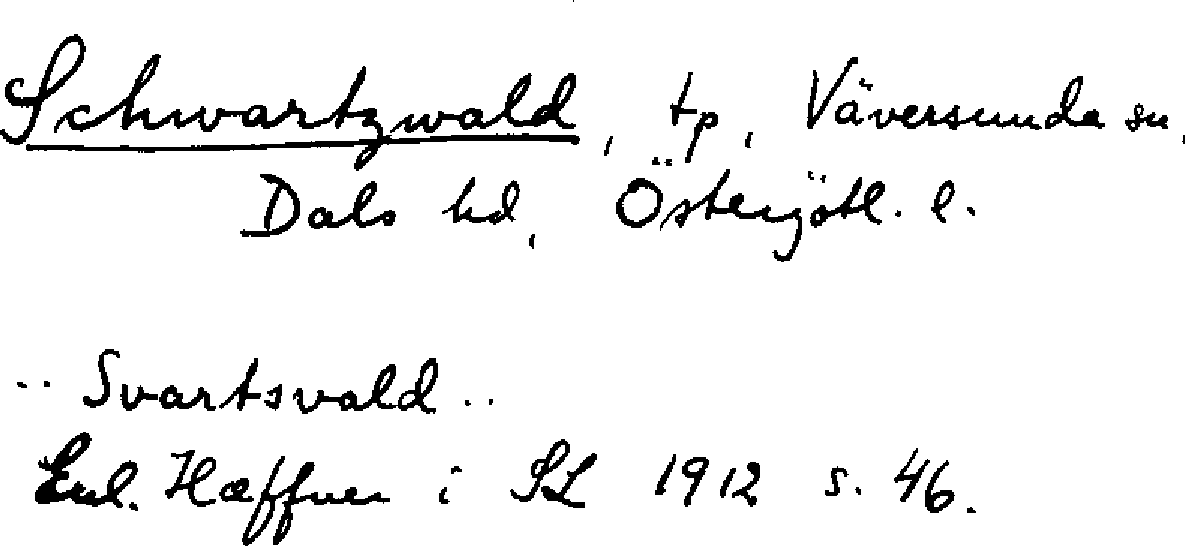 Schwartzwald, tp, Väversunda sn,
Dals hd, Östergötl. l.
.. Svartsvald ..
Enl. Hæffner i SL 1912 s. 46.